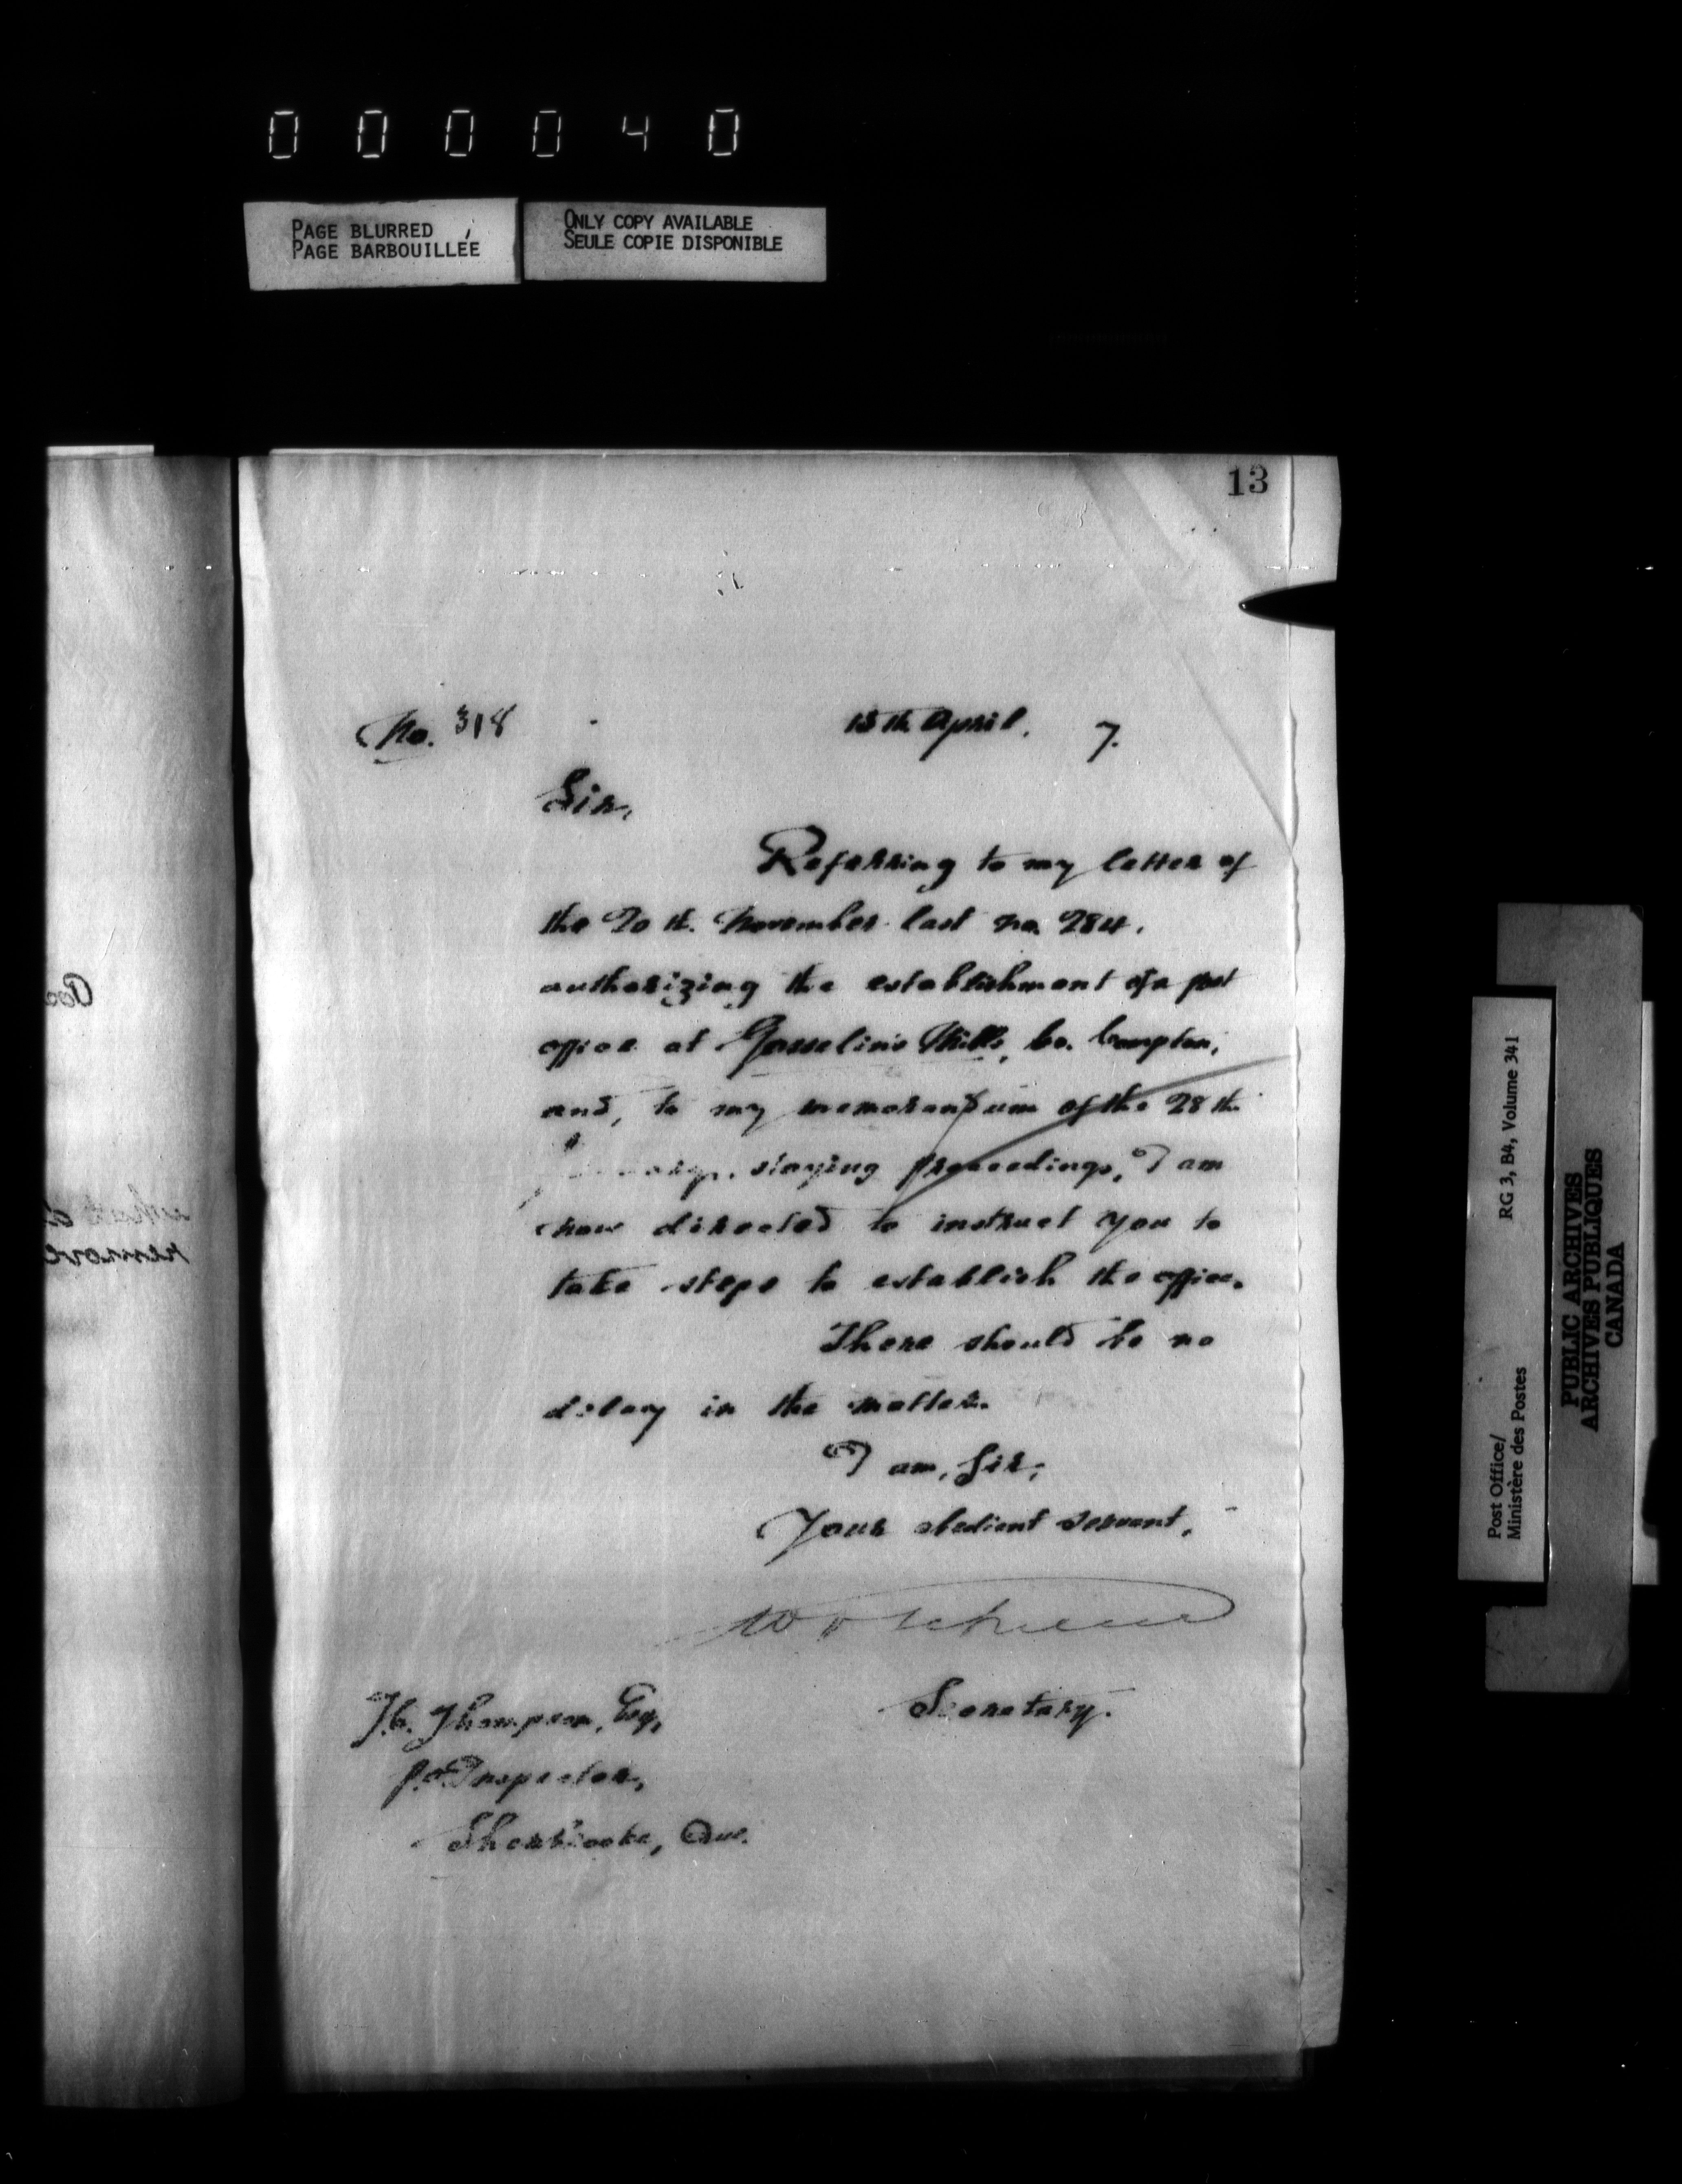 000040
PAGE BLURRED
PAGE BARBOUILLÉE
ONLY COPY AVAILABLE
SEULE COPIE DISPONIBLE
13
No. 318
15th April, 7.
Sir,
Referring to my letter of
the 20th. November last no. 284,
authorizing the establishment of a post
office at Gosselin's Mills, Co. Compton,
and, to my memorandum of the 28th
staying proceedings, I am
now directed to instruct you to
take steps to establish the office.
There should be no
delay in the matter.
I am, Sir,
Your obedient servant,
Secretary.
J.C. Thompson, Esq,
P.O. Inspector,
Sherbrooke, Que.
remove
RG 3, B4, Volume 341
Post Office/
Ministère des Postes
PUBLIC ARCHIVES
ARCHIVES PUBLIQUES
CANADA